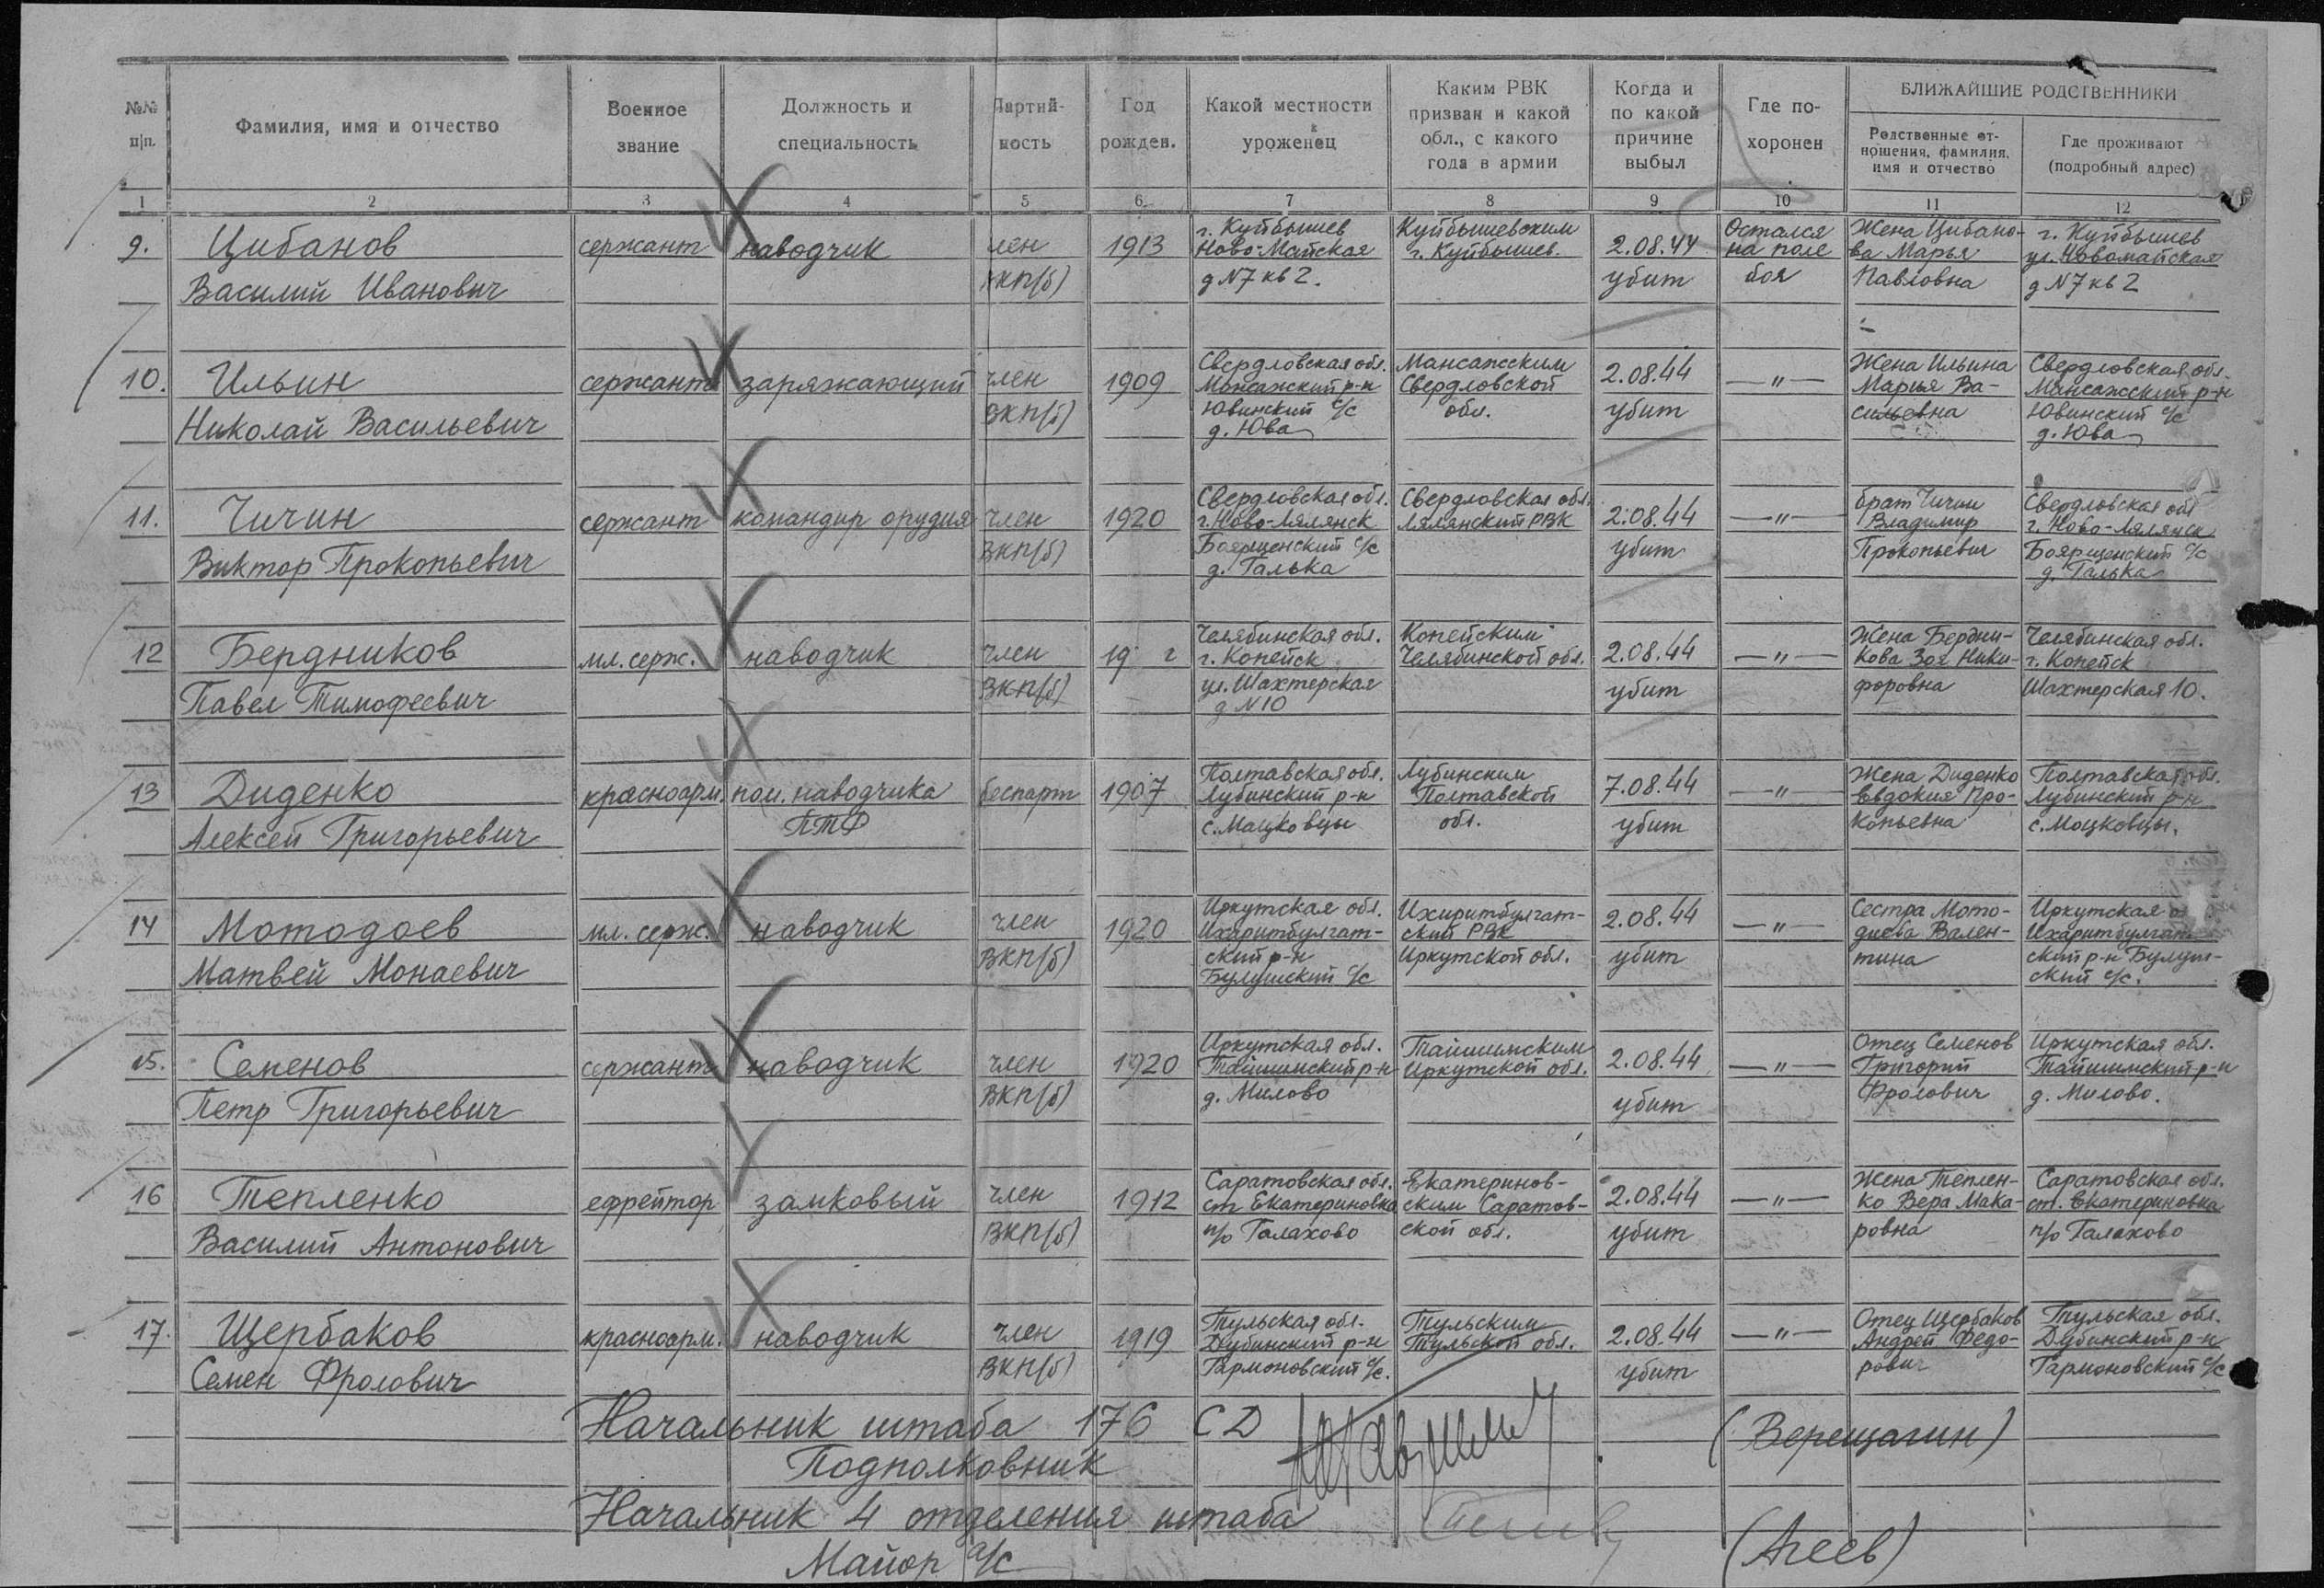 №№ п|п.
Фамилия, имя и отчество
Военное звание
Должность и специальность
Партий-ность
Год рожден.
Какой местности уроженец
Каким РВК призван и какой обл., с какого года в армии
Когда и по какой причине выбыл
Где по-хоронен
БЛИЖАЙШИЕ РОДСТВЕННИКИ
Родственные от-ношения, фамилия, имя и отчество
Где проживают (подробный адрес)
1 2 3 4 5 6 7 8 9 10 11 12
9. Цибанов сержант наводчик член 1913 г. Куйбышев Куйбышевским 2.08.44 Остался Жена Цибано- г. Куйбышев
Ново-Майская г. Куйбышев. на поле ва Марья ул. Новомайская
Василий Иванович ВКП(б) д N7 кв 2. убит боя Павловна д N7 кв 2
10. Ильин сержант заряжающий член 1909 Свердловская обл. Мансажским 2.08.44 —"— Жена Ильина Свердловская обл.
Мансажский р-н Свердловской Марья Ва- Мансажский р-н
Николай Васильевич ВКП(б) Ювинский с/с обл. убит сильевна Ювинский с/с
д. Юва д. Юва
11. Чичин сержант командир орудия член 1920 Свердловская обл. Свердловская обл. 2.08.44 —"— брат Чичин Свердловская обл
г. Ново-Лялянск Лялянский РВК Владимир г. Ново-Лялянск
Виктор Прокопьевич ВКП(б) Бояршенский с/с убит Прокопьевич Бояршенский с/с
д. Талька д. Талька
12 Бердников мл. серж. наводчик член 19 г Челябинская обл. Копейским 2.08.44 —"— Жена Бердни- Челябинская обл.
г. Копейск Челябинской обл. кова Зоя Ники- г. Копейск
Павел Тимофеевич ВКП(б) ул. Шахтерская убит форовна Шахтерская 10.
д N10
13 Диденко красноарм. пом. наводчика беспарт 1907 Полтавская обл. Лубинским 7.08.44 —"— Жена Диденко Полтавская обл.
Лубинский р-н Полтавской Евдокия Про- Лубинский р-н
Алексей Григорьевич ПТР с. Мацковцы обл. убит копьевна с. Моцковцы.
14 Мотодоев мл. серж. наводчик член 1920 Иркутская обл. Ихиритбулгат- 2.08.44 —"— Сестра Мото- Иркутская о
Ихаритбулгат- ский РВК диева Вален- Ихаритбулгат
Матвей Монаевич ВКП(б) ский р-н Иркутской обл. убит тина ский р-н Булуш-
Булушский с/с ский с/с.
15. Семенов сержант наводчик член 1920 Иркутская обл. Тайшимским 2.08.44 —"— Отец Семенов Иркутская обл.
Тайшимский р-н Иркутской обл. Григорий Тайшимский р-н
Петр Григорьевич ВКП(б) д. Милово убит Фролович д. Милово.
16 Тепленко ефрейтор замковый член 1912 Саратовская обл. Екатеринов- 2.08.44 —"— Жена Теплен- Саратовская обл.
ст Екатериновка ским Саратов- ко Вера Мака- ст. Екатериновка
Василий Антонович ВКП(б) п/о Галахово ской обл. убит ровна п/о Галахово
17. Щербаков красноарм. наводчик член 1919 Тульская обл. Тульским 2.08.44 —"— Отец Щербаков Тульская обл.
Дубинский р-н Тульской обл. Андрей Федо- Дубинский р-н
Семен Фролович ВКП(б) Гармоновский с/с. убит рович Гармоновский с/с
Начальник штаба 176 СД
Подполковник (Верещагин)
Начальник 4 отделения штаба
Майор а/с (Агеев)